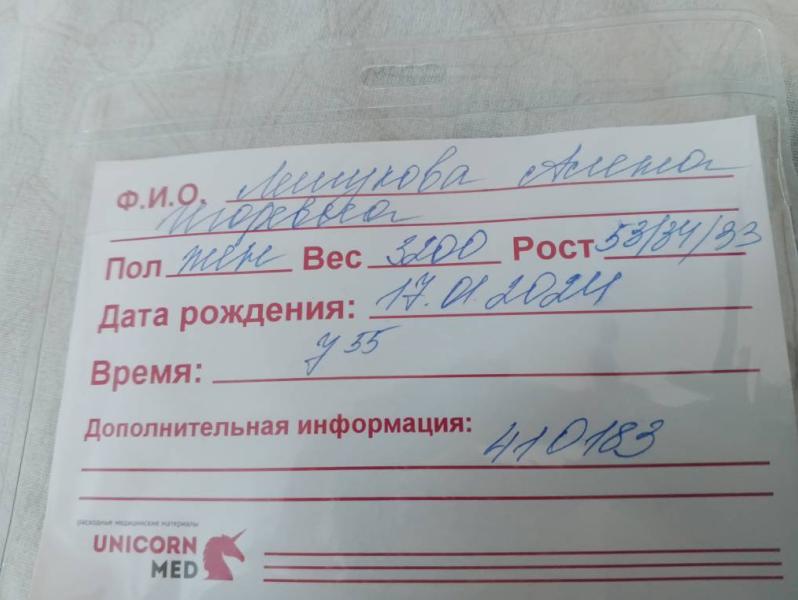 Ф.И.О. Лешукова Алена
Игоревна
Пол жен Вес 3200 Рост 53/34/33
Дата рождения: 17.01.2024
Время: 455
Дополнительная информация:
410183
расходные медицинские материалы
UNICORN
MED